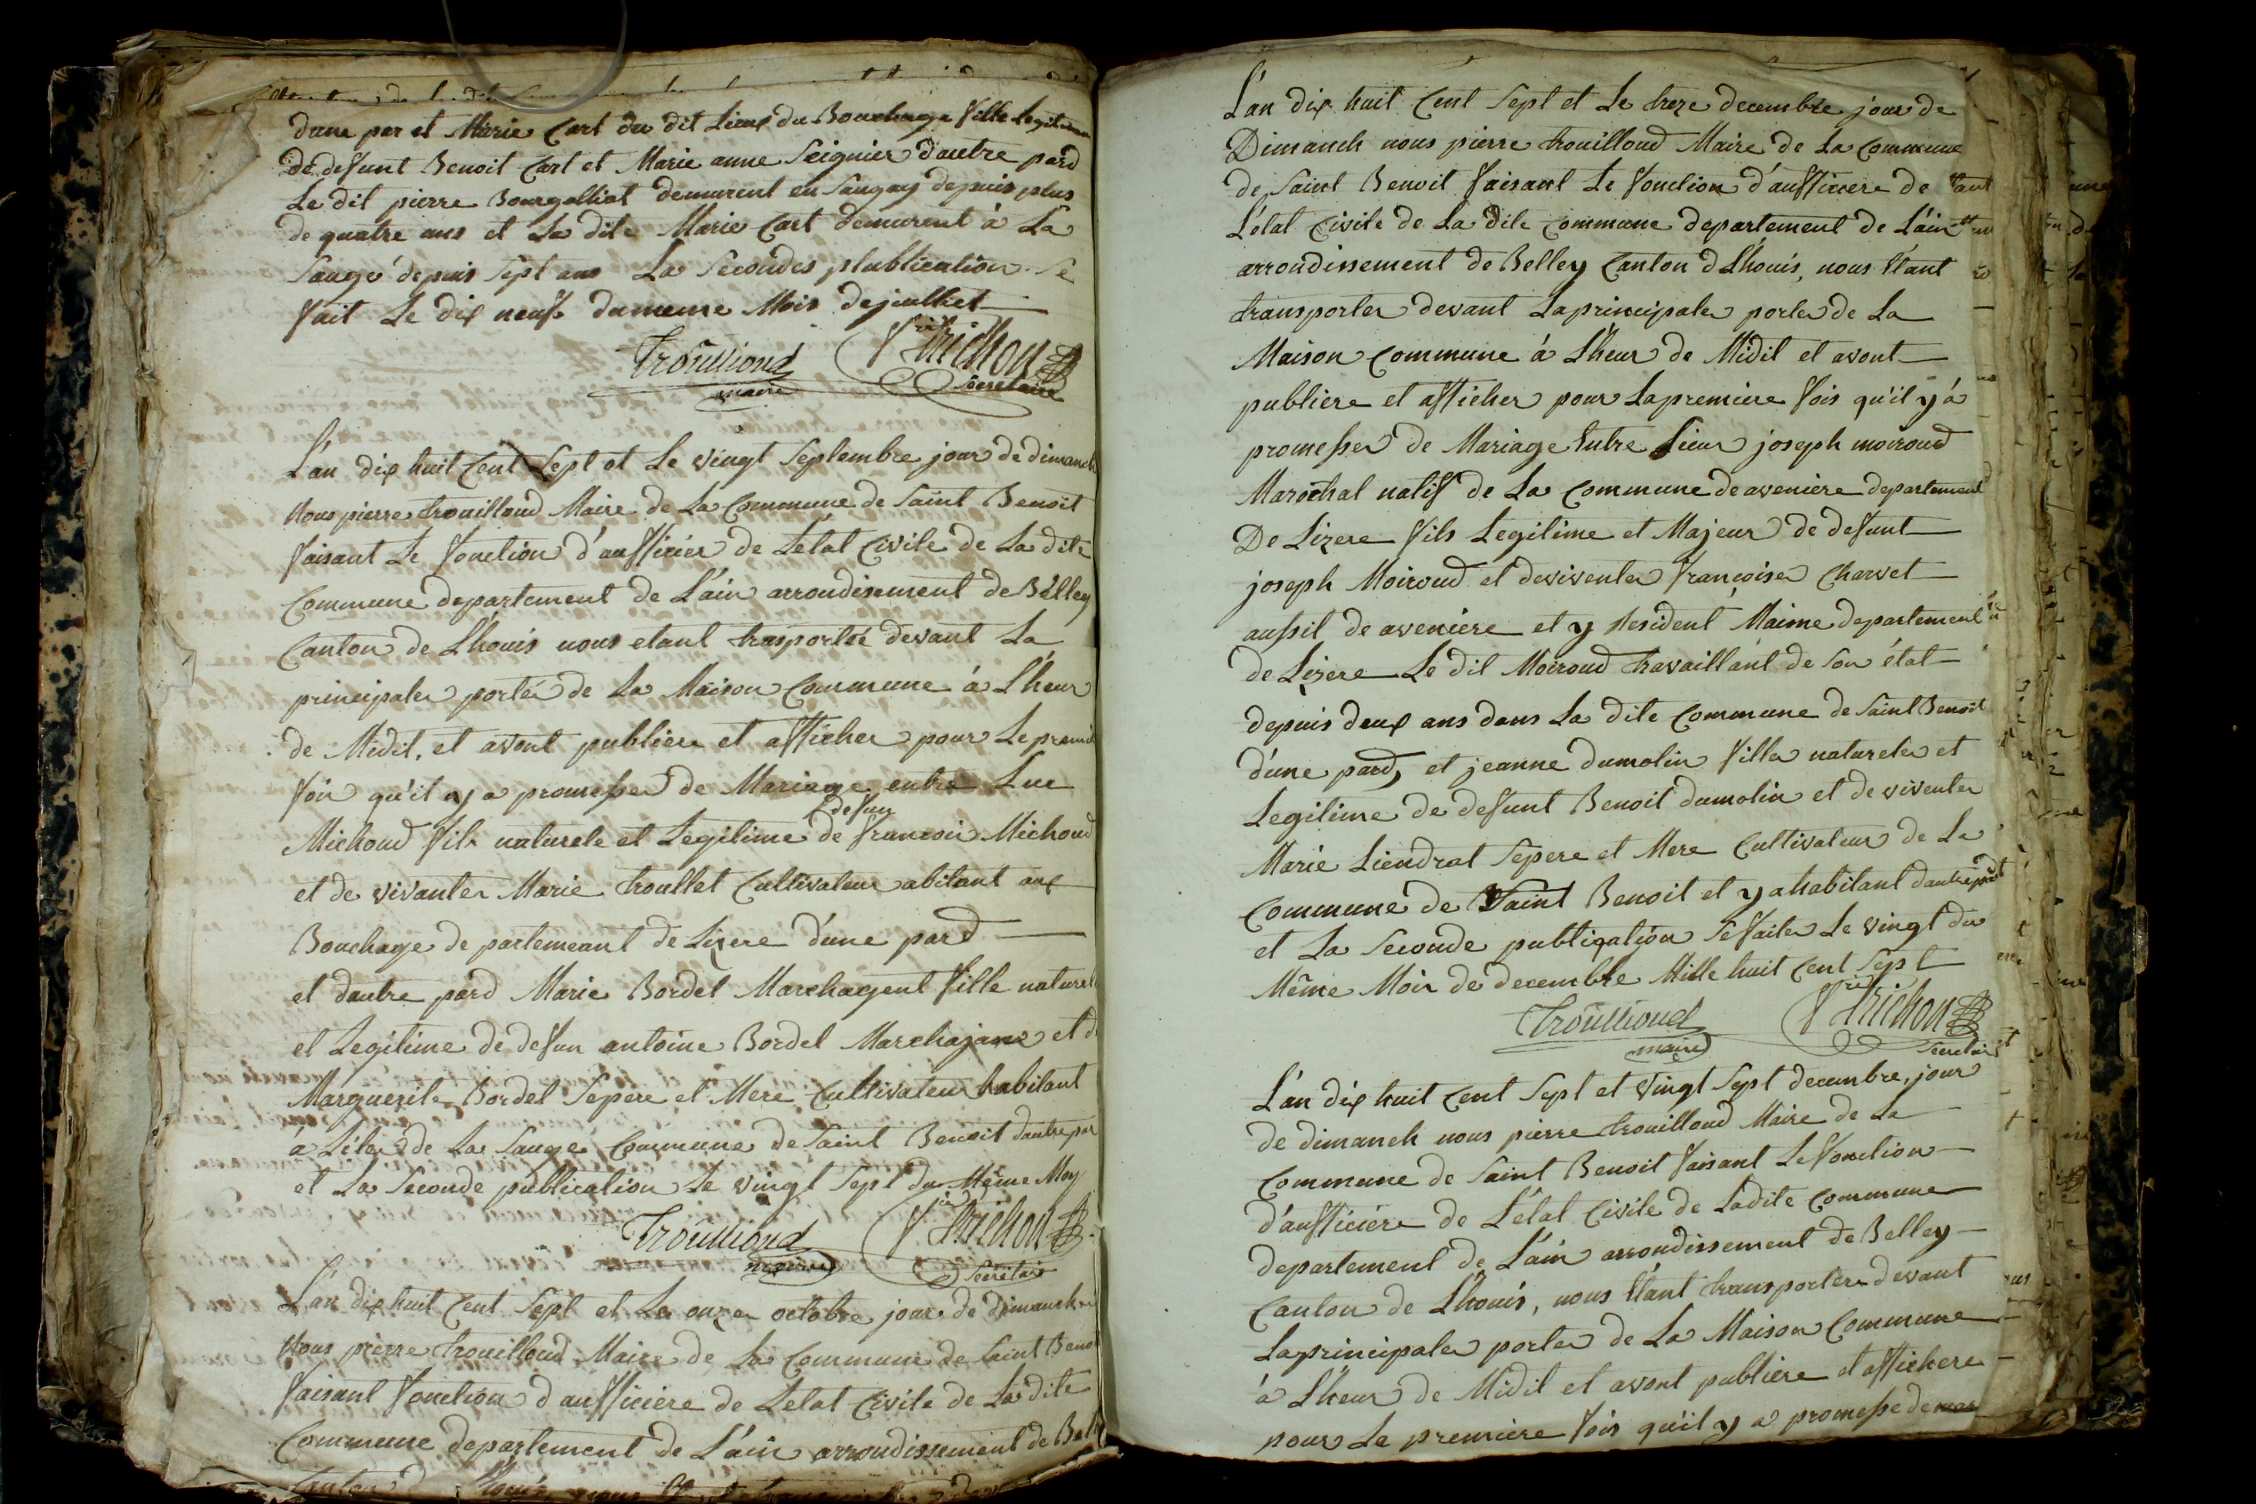 dune par et Marie Cart du dit Lieux du Bouchage fille Legitime
de defunt Benoit Cart et Marie anne Seignier d'autre pard
Le dit pierre Bourgalliat demurent en Saugey depuis plus
de quatre ans et La dite Marie Cart demurent à La
Saugé depuis Sept ans La Secondes plublication Se
fait Le dix neuf dumeme Mois dejeulliet
Trouilloud Trichon
maire Secretaire
L'an dix huit Cent Sept et Le vingt Septembre jour de dimanch
Nous pierre trouilloud Maire de La Commune de Saint Benoit
faisant Le fonction d'aufficier de Létat Civile de La dite
Commune departement de L'ain arrondisement de Belley
Canton de Lhouis nous etant trasportée devant La
principaler porter de La Maison Commune à L'heur
de Midit, et avont publiere et afficher pour Le premie
foir qu'il y a promesser de Mariage entre Luc
defun
Michoud fils naturele et Legitime de francoir Michoud
et de vivanter Marie troullet Cultivateur abitant aux
Bouchage de partemeant de Lizere d'une pard
et dautre pard Marie Bordel Marchagent fille naturel
et Legitime de defun antoine Bordel Marchajane et d
Marguerite Bordel Sepere et Mere Cultivateur habitant
à de La Saugé Commune de Saint Benoit dautre par
et La Seconde publication Le vingt Sept du Même Moy
Trouilloud Trichon
maire Secretair
L'an dix huit Cent Sept et Le onzer octobre jour de Dimanch
Nous pierre trouilloud Maire de La Commune de Saint Beno
faisant fonction d'aufficiere de Letat Civile de La dite
Commune departement de L'ain arrondissement de Bell
L'an dix huit Cent Sept et Le treze decembre jour de
Dimanch nous pierre trouilloud Maire de La Commune
de Saint Benoit faisant Le fonction d'aufficiere de
L'etat Civile de La dite Commune departement de L'ain
arroudissement de Belley Canton d Lhouis, nous étant
transporter devant Laprincipaler porter de La
Maison Commune à L'heur de Midit et avont
publiere et afficher pour Lapremiere fois qu'il y à
promesser de Mariage Entre Sieur joseph moiroud
Marechal natif de La Commune de aveniere departement
De Lizere fils Legitime et Majeur de defunt
joseph Moiroud et deviventer francoiser Charvet
aussit de aveniere et y Resident Maime departement
de Lizere Le dit Moiroud travaillant de Son état
depuis deux ans dans La dite Commune de Saint Benoit
d'une pard, et jeanne dumolin filler naturele et
Legitime de defunt Benoit dumolin et de viventer
Marie Liendrat Sepere et Mere Cultivateur de La
Commune de Saint Benoit et y ahabitant dautre part
et La Seconde publiqation Sefaiter Le vingt du
Même Moir de decembre Mille huit Cent Sept
Trouilloud Trichon
maire Secretair
L'an dix huit Cent Sept et vingt Sept decembre, jour
de dimanch nous pierre trouilloud Maire de La
Commune de Saint Benoit faisant Lefonction
d'aufficiere de L'etat Civile de Ladite Commune
departement de L'ain arrondissement de Belley
Canton de Lhouis, nous étant transporter devant
Laprincipaler porter de La Maison Commune
à L'heur de Midit et avont publiere et affichere
pour La premiere fois qu'il y a promesse de mar